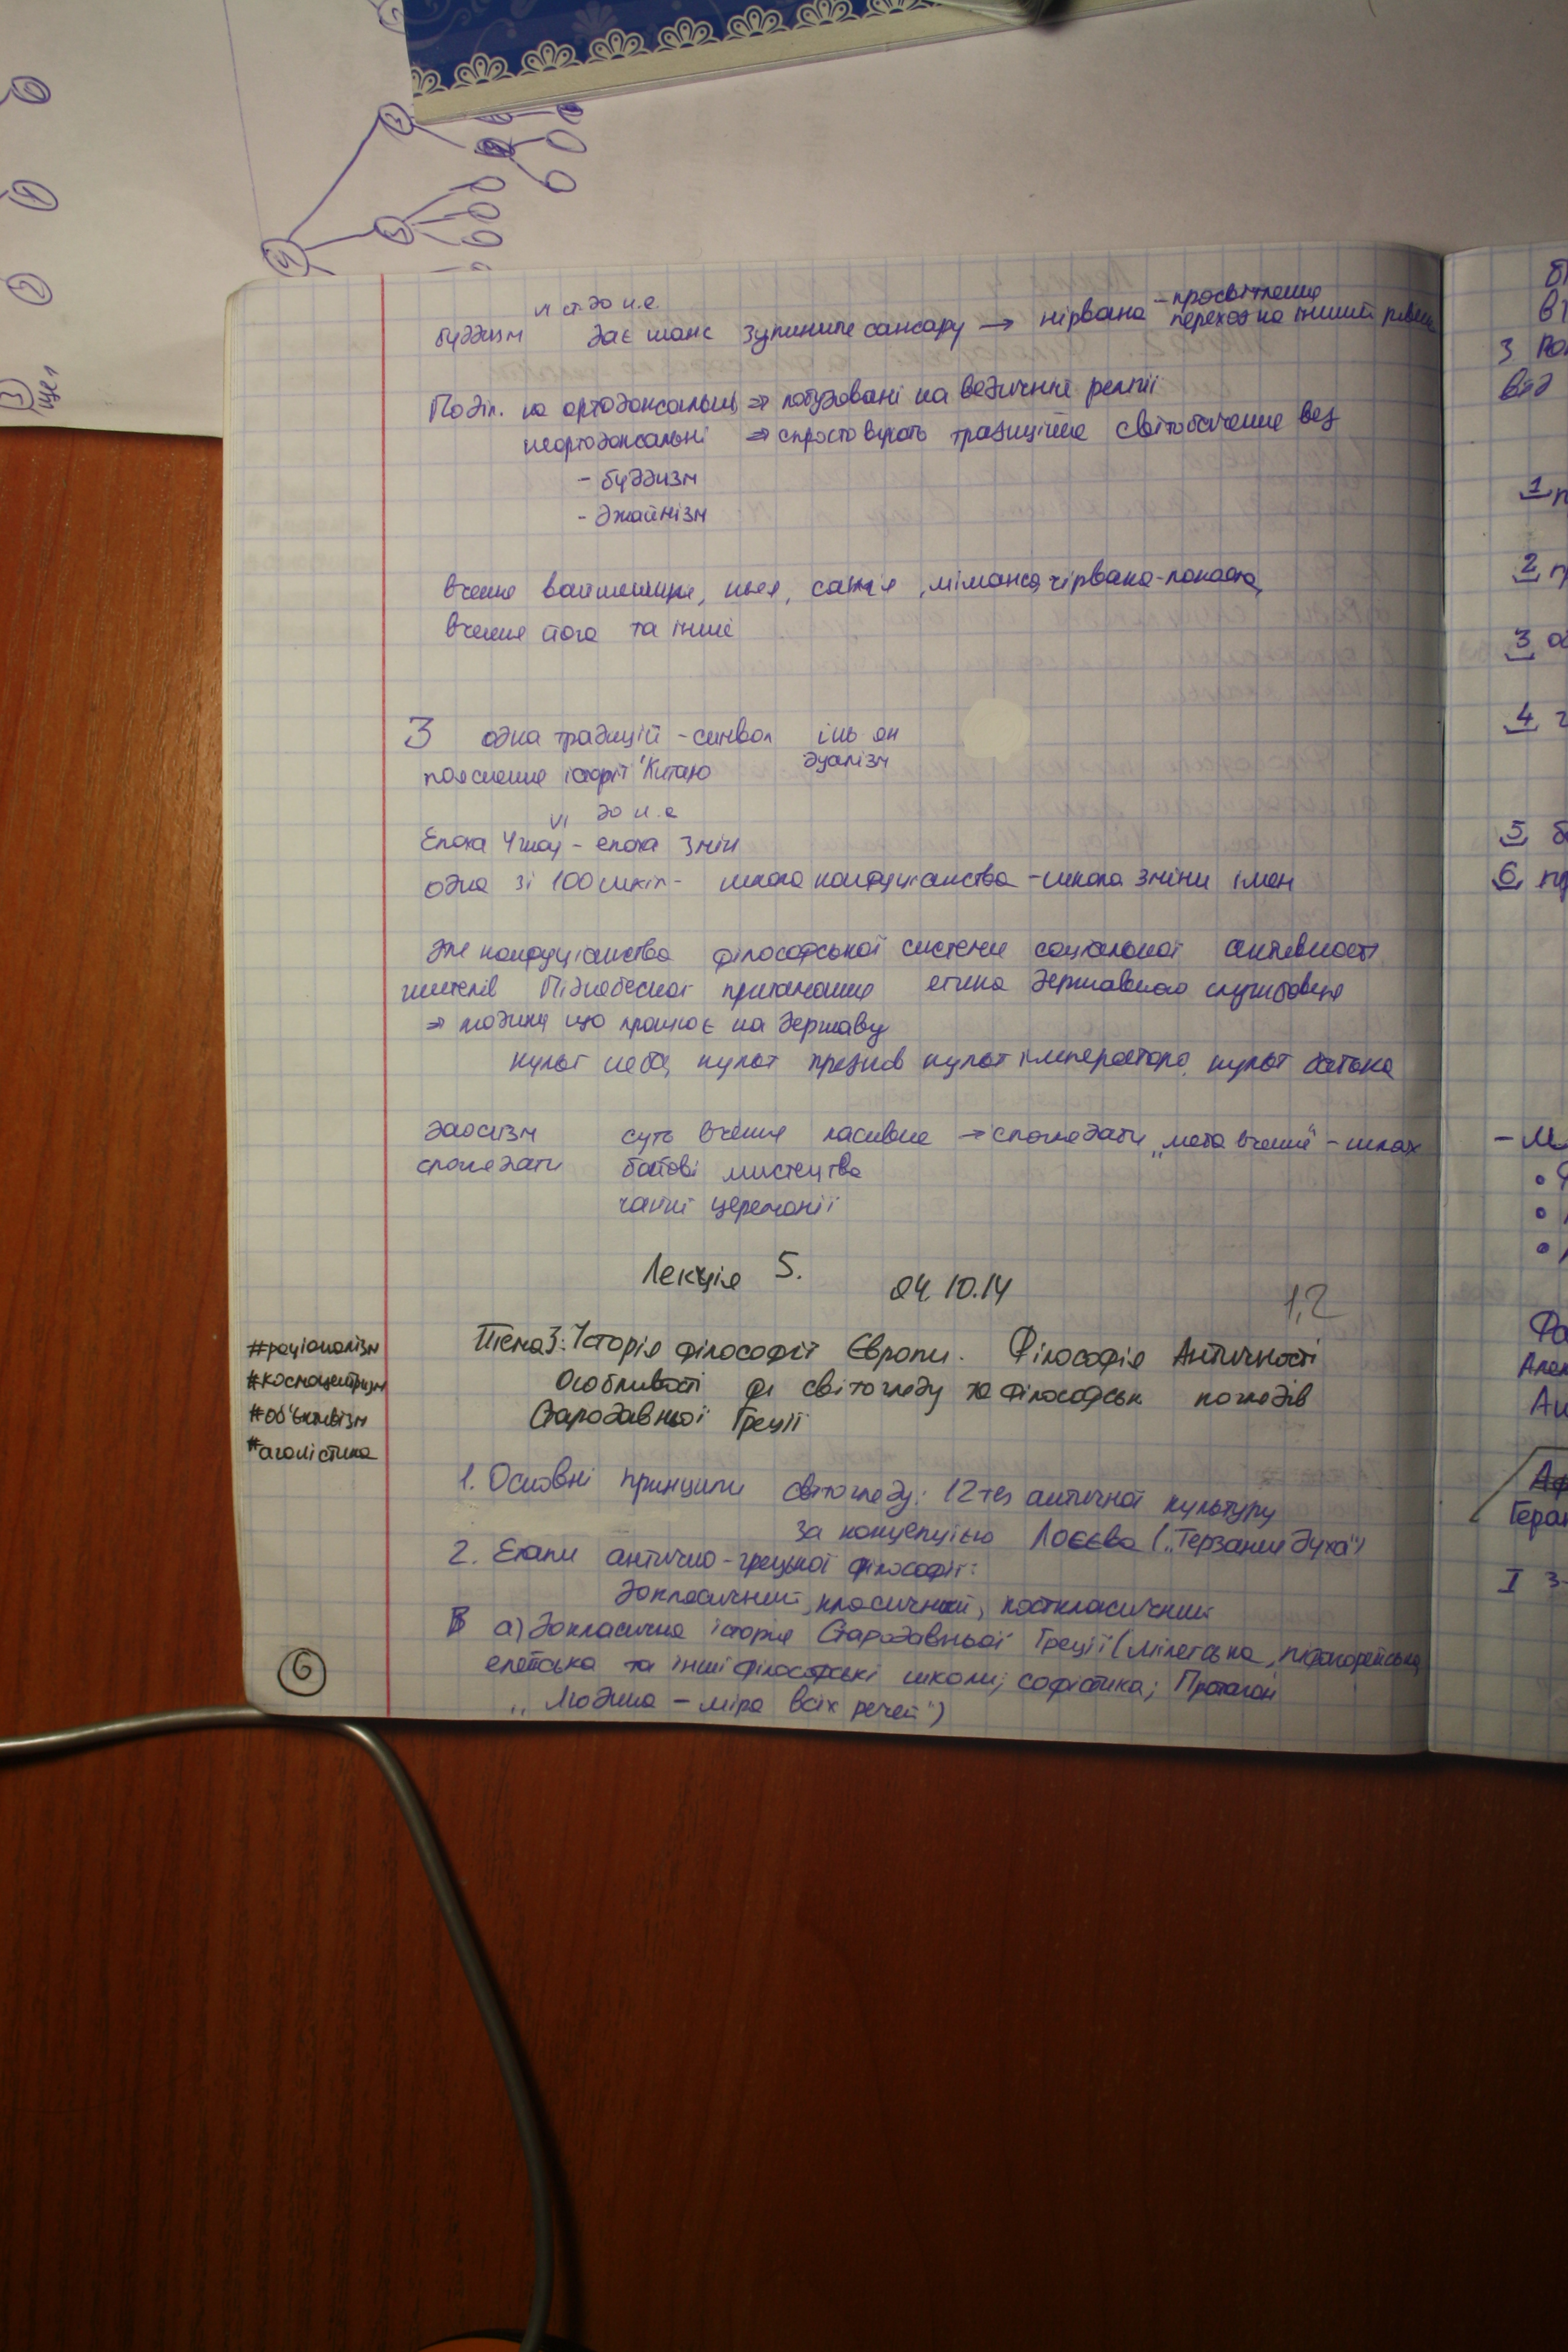 VI ст. до н.е.
буддизм дає шанс зупинити сансару → нірвана – просвітлення
перехід на інший рівень
Поділ. на ортодоксальні ⇒ побудовані на ведичній релігії
неортодоксальні ⇒ спростовують традиційне світобачення вед
- буддизм
- джайнізм
вчення вайшешика, ньяя, санкя, міманса, нірвана-локаята,
вчення йога та інші
3 одна традицій - символ інь ян
пояснення історії Китаю дуалізм
VI до н.е
Епоха Чжоу - епоха змін
одна зі 100 шкіл - школа конфуціанства - школа зміни імен
для конфуціанства філософської системи соціальної активності
жителів Піднебесної притаманна етика державного службовця
⇒ людина що працює на державу
культ неба, культ предків культ імператора, культ батька
даосизм суть вчення пасивне → споглядати „мета вчення" - шлях
споглядати бойові мистецтва
чайні церемонії
Лекція 5. 04.10.14
1,2
Тема3: Історія філософії Європи. Філософія Античності
Особливості світогляду та філософськ поглядів
Стародавньої Греції
#раціоналізм
#космоцентризм
#об'єктивізм
#агоністика
1. Основні принципи світогляду: 12 тез античної культури
за концепцією Лосєва („Терзание духа")
2. Етапи антично-грецької філософії:
докласичний, класичний, посткласичний
а) Докласична історія Стародавньої Греції (мілетська, піфагорейська,
елейська та інші філософські школи; софістика; Протагон
„Людина – міра всіх речей")
6
1
2
3
4
5
6
I